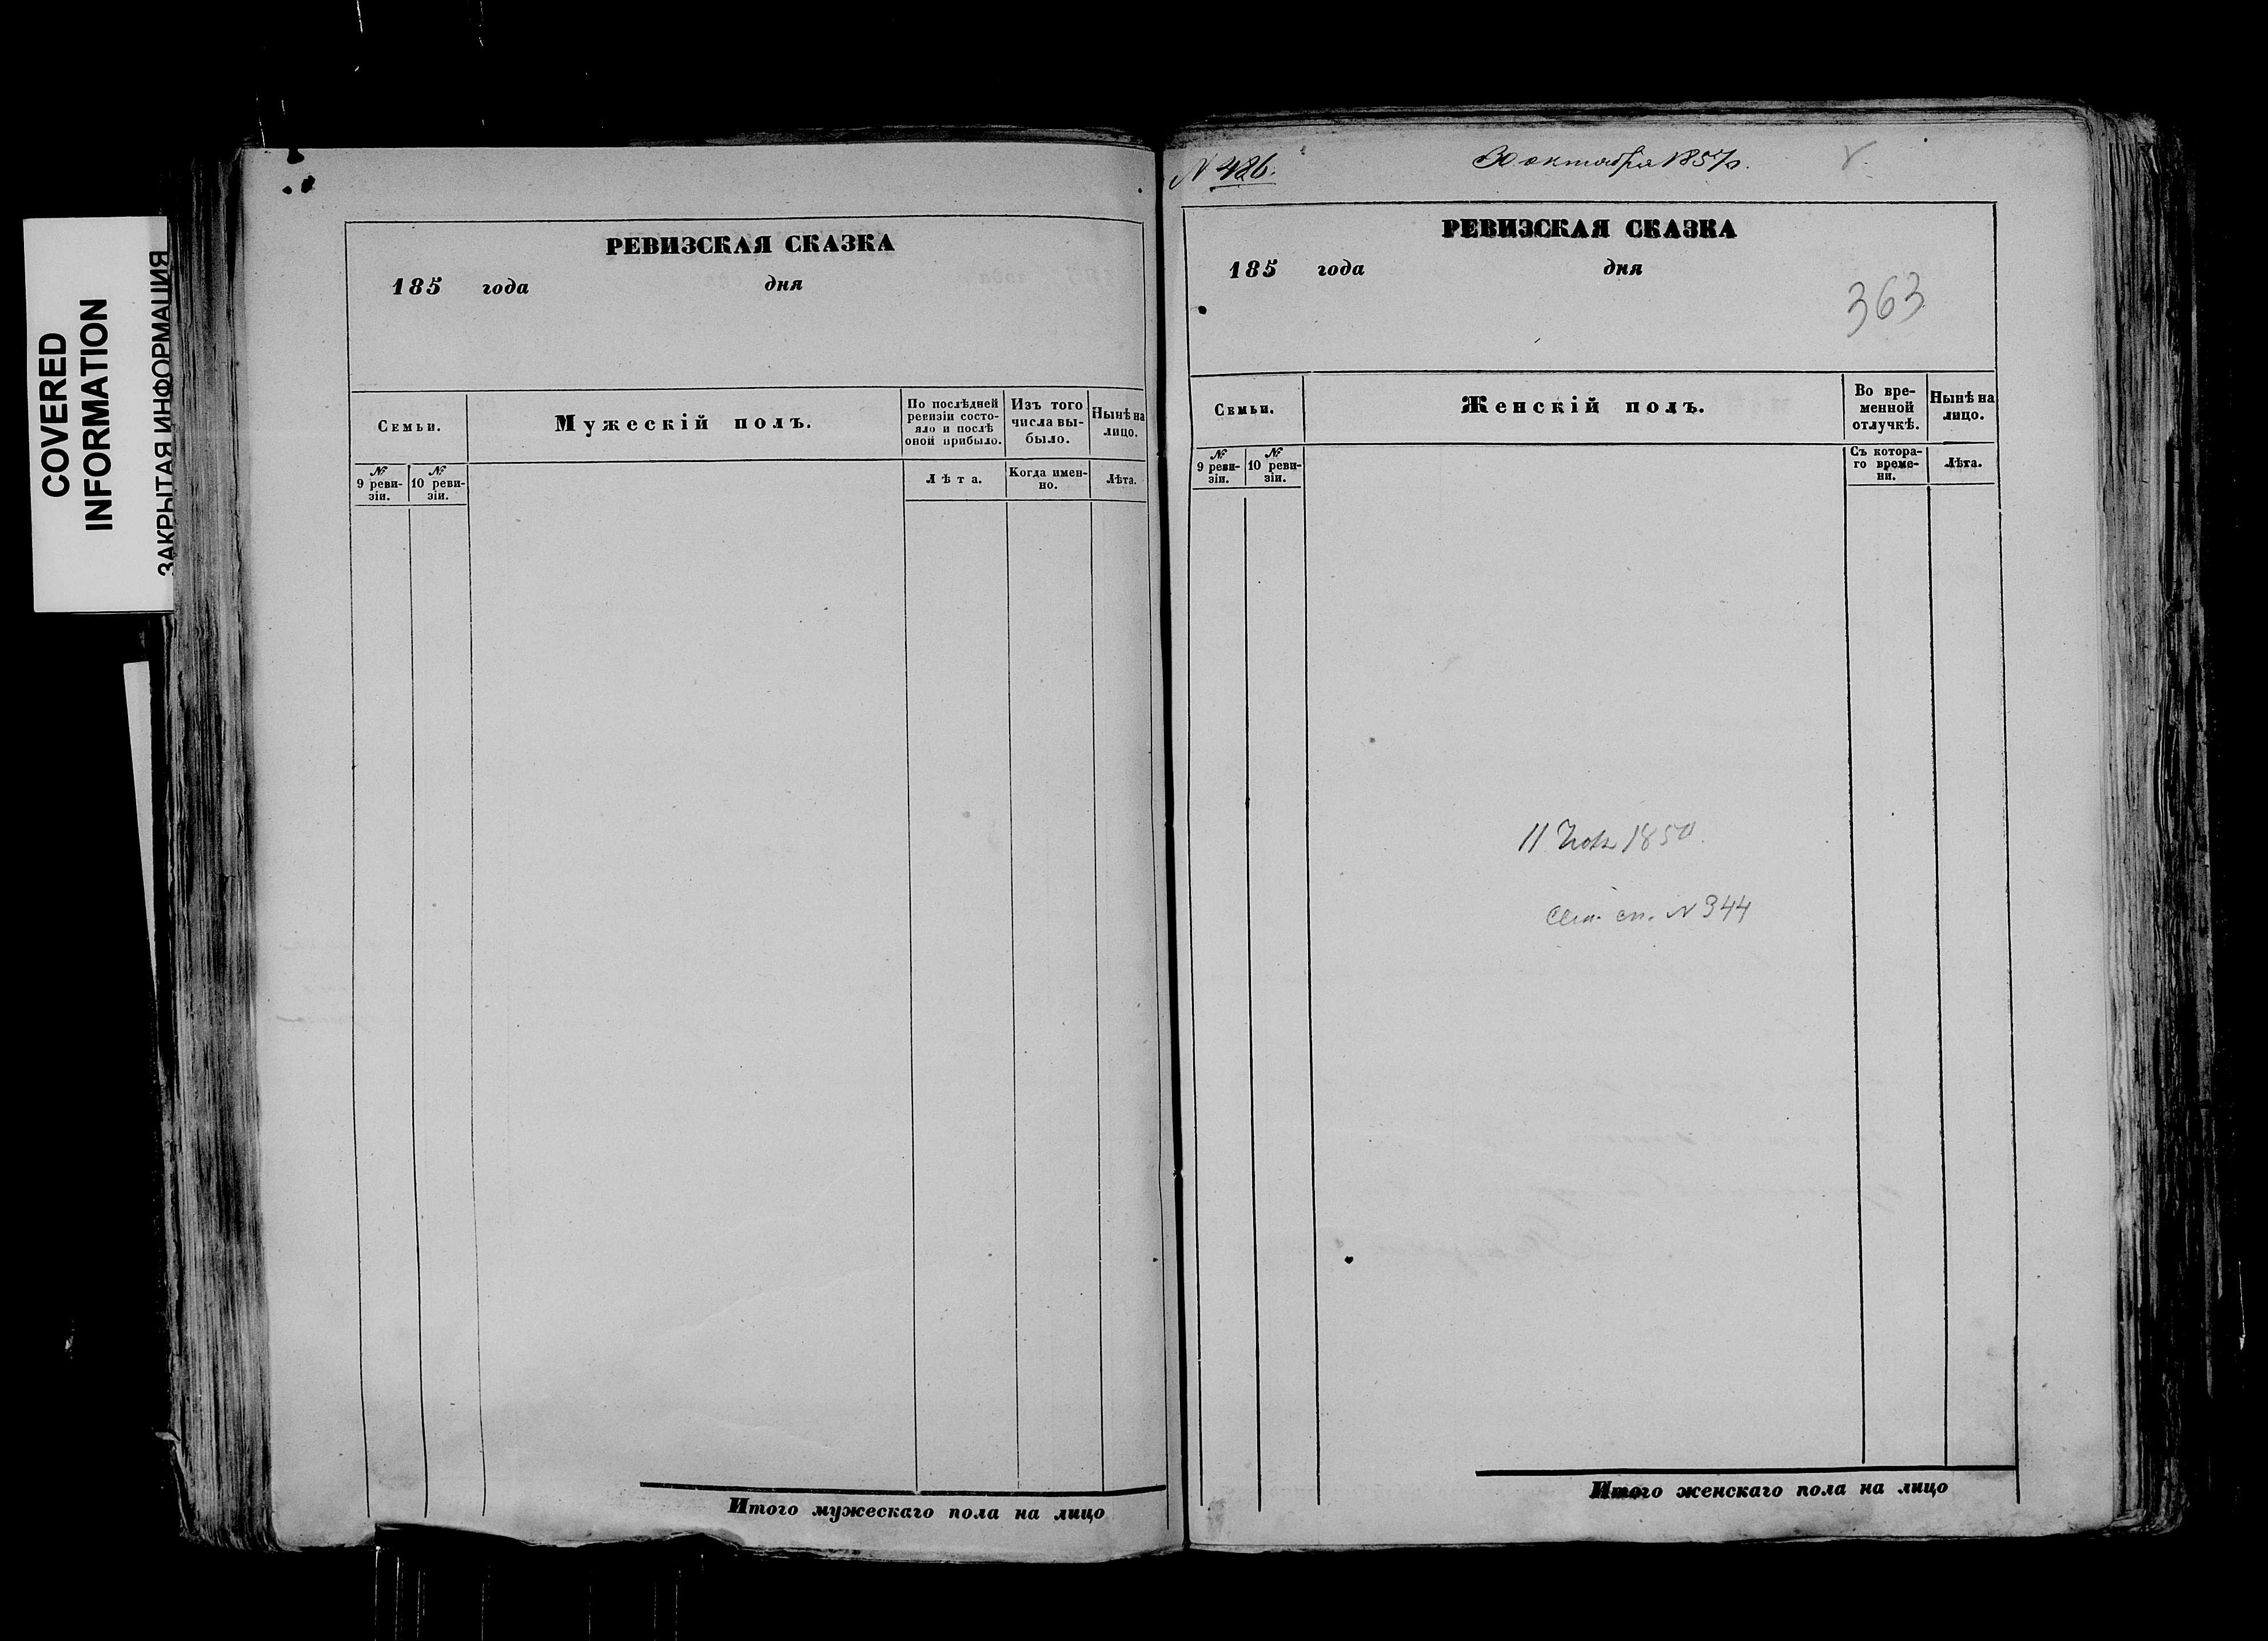 COVERED
INFORMATION
ЗАКРЫТАЯ ИНФОРМАЦИЯ
РЕВИЗСКАЯ СКАЗКА
185 года дня
Семьи.
Мужескій полъ.
По послѣдней
ревизіи состо-
яло и послѣ
оной прибыло.
Изъ того
числа вы-
было.
Нынѣ на
лицо.
№
9 реви-
зіи.
№
10 реви-
зіи.
Лѣта.
Когда имен-
но.
Лѣта.
Итого мужескаго пола на лицо
N 426.
30 октября 1857 г.
РЕВИЗСКАЯ СКАЗКА
185 года дня
363
Семьи.
Женскій полъ.
Во вре-
менной
отлучкѣ.
Нынѣ на
лицо.
№
9 реви-
зіи.
№
10 реви-
зіи.
Съ котора-
го време-
ни.
Лѣта.
11 1850
сп. N 344
Итого женскаго пола на лицо